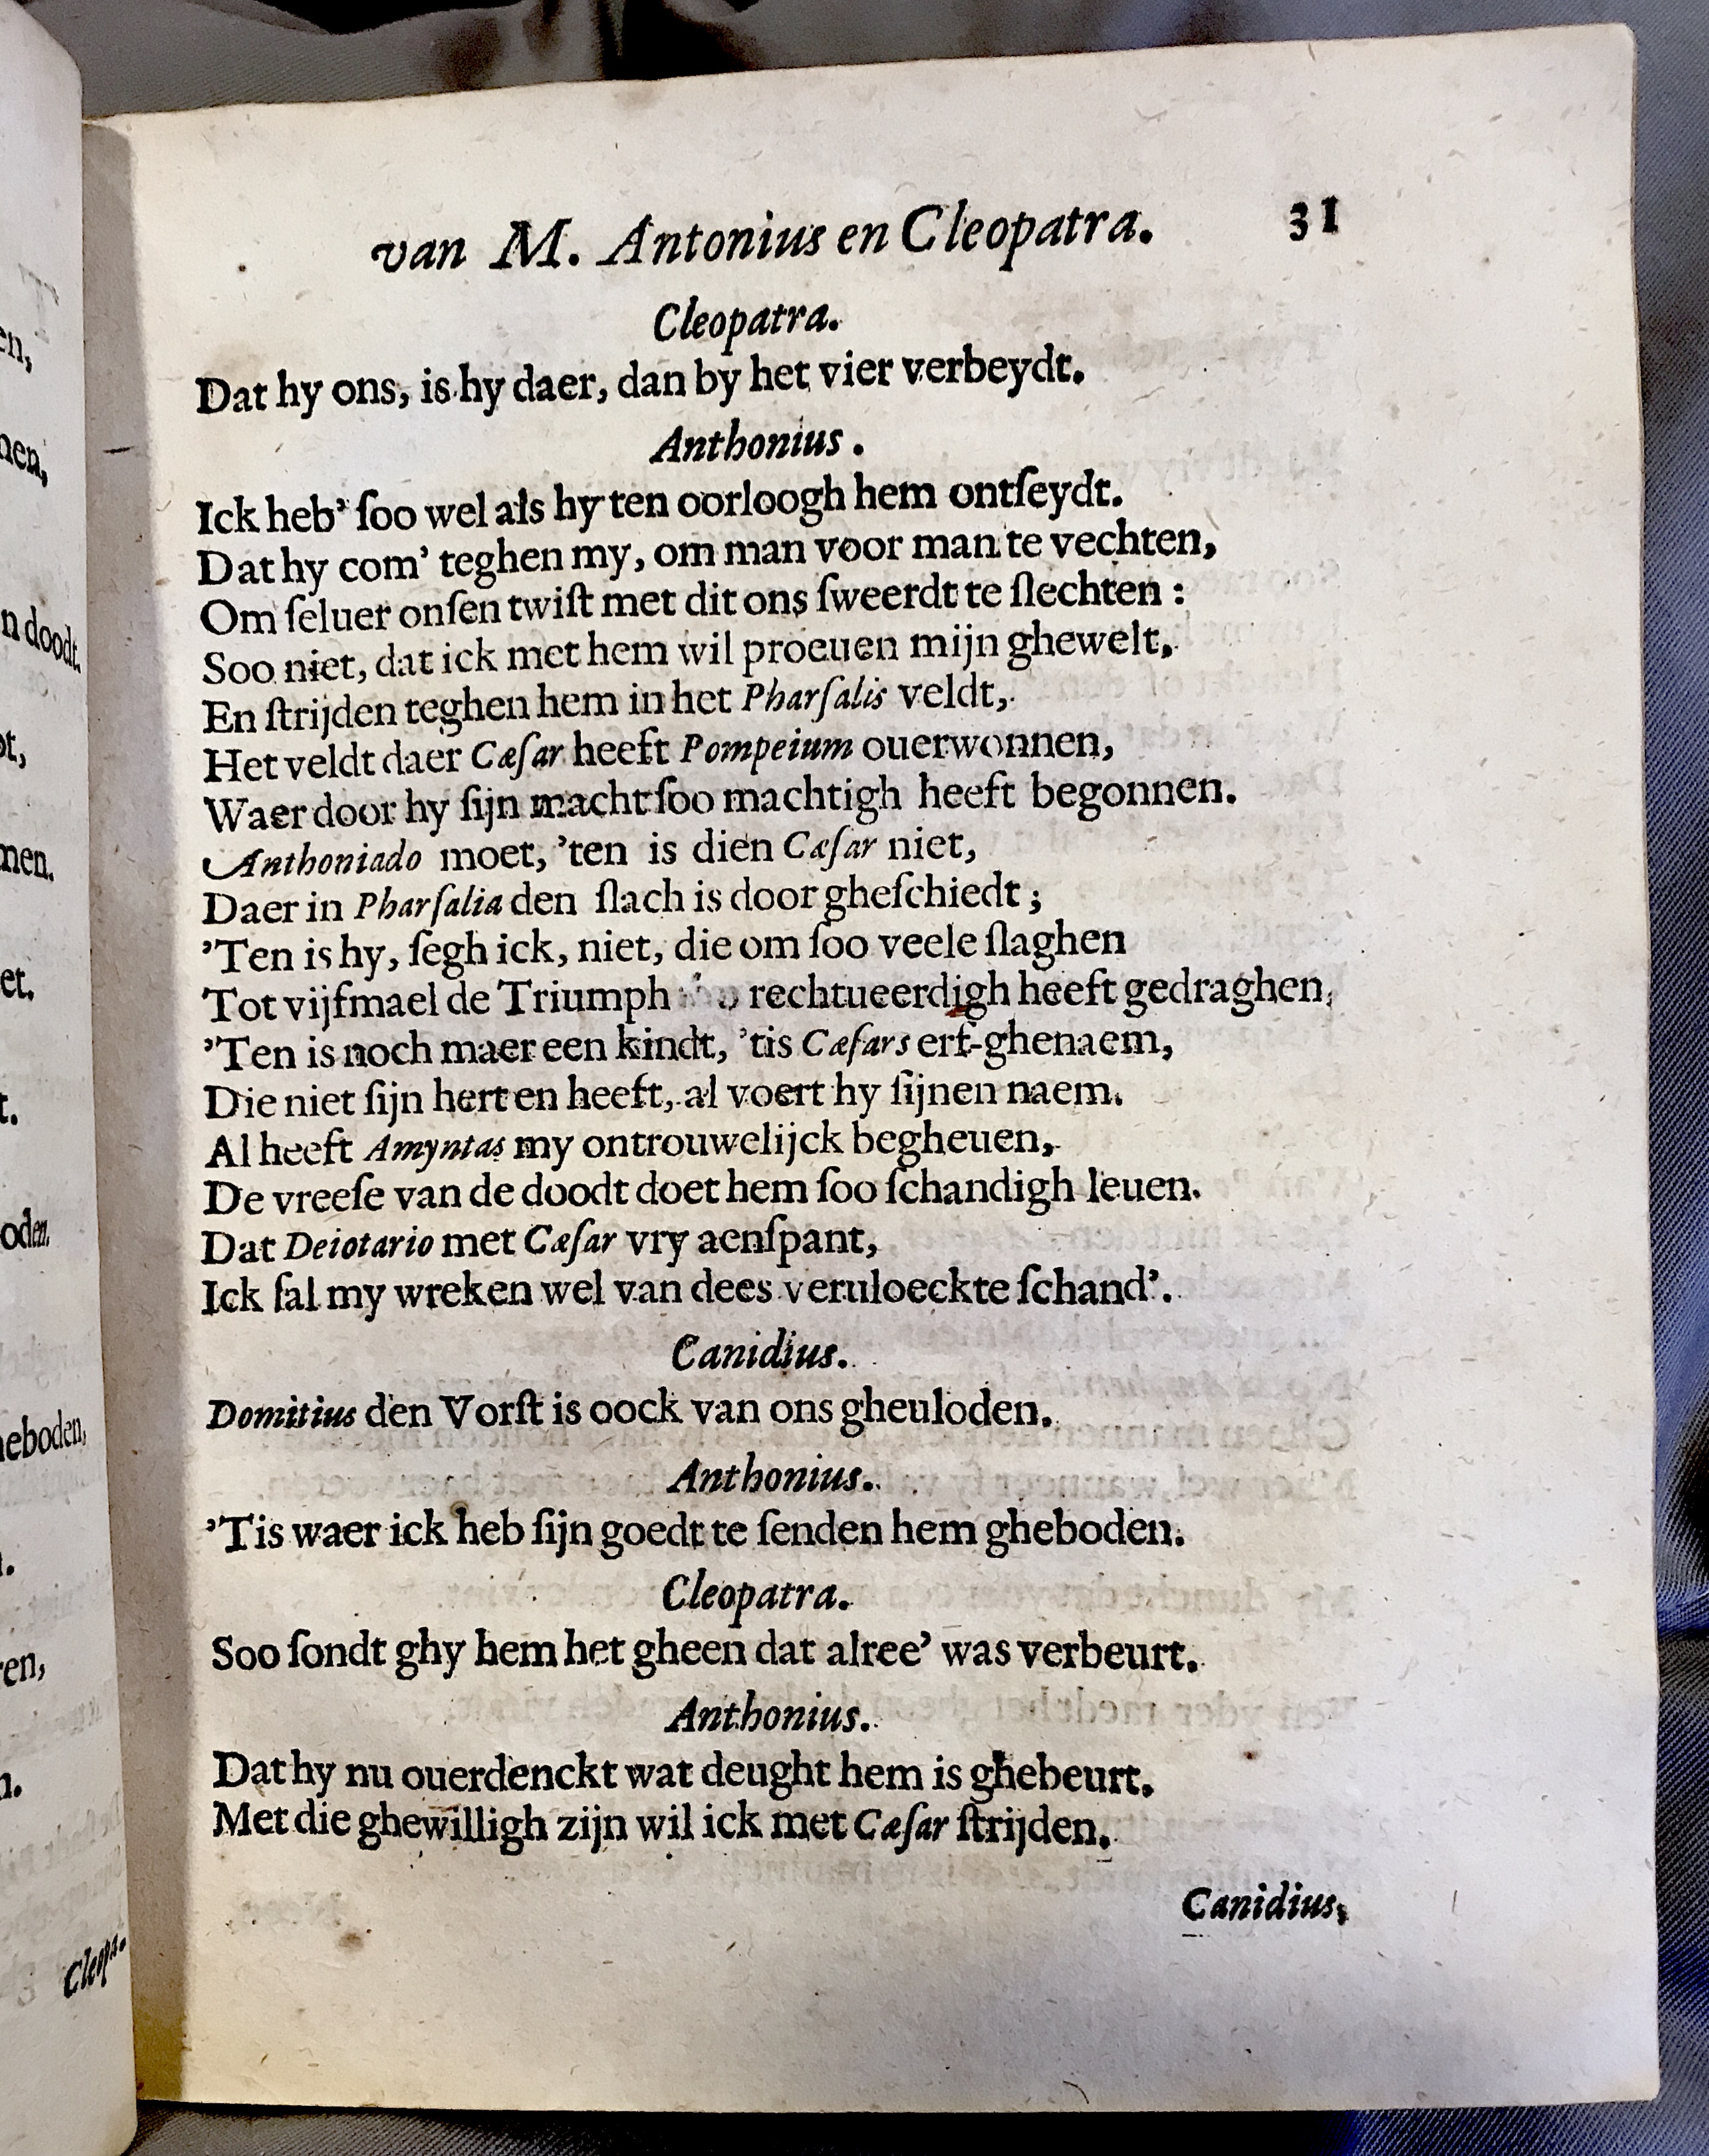 van M. Antonius en Cleopatra. 31
Cleopatra.
Dat hy ons, is hy daer, dan by het vier verbeydt.
Anthonius.
Ick heb’ ſoo wel als hy ten oorloogh hem ontſeydt.
Dat hy com’ teghen my, om man voor man te vechten,
Om ſeluer onſen twiſt met dit ons ſweerdt te ſlechten :
Soo niet, dat ick met hem wil proeuen mijn ghewelt,
En ſtrijden teghen hem in het Pharſalis veldt,
Het veldt daer Cæſar heeft Pompeium ouerwonnen,
Waer door hy ſijn macht ſoo machtigh heeft begonnen.
Anthoniado moet, ’ten is dien Cæſar niet,
Daer in Pharſalia den ſlach is door gheſchiedt ;
’Ten is hy, ſegh ick, niet, die om ſoo veele ſlaghen
Tot vijfmael de Triumph rechtueerdigh heeft gedraghen,
’Ten is noch maer een kindt, ’tis Cæſars erf-ghenaem,
Die niet ſijn hert en heeft, al voert hy ſijnen naem.
Al heeft Amyntas my ontrouwelijck begheuen,
De vreeſe van de doodt doet hem ſoo ſchandigh leuen.
Dat Deiotario met Cæſar vry aenſpant,
Ick ſal my wreken wel van dees veruloeckte ſchand’.
Canidius.
Domitius den Vorſt is oock van ons gheuloden.
Anthonius.
’Tis waer ick heb ſijn goedt te ſenden hem gheboden.
Cleopatra.
Soo ſondt ghy hem het gheen dat alree’ was verbeurt.
Anthonius.
Dat hy nu ouerdenckt wat deught hem is ghebeurt.
Met die ghewilligh zijn wil ick met Cæſar ſtrijden.
Canidius,
en,
nen,
n doodt.
t,
men.
et.
t.
oden.
heboden,
en,
n.
Cleopa.